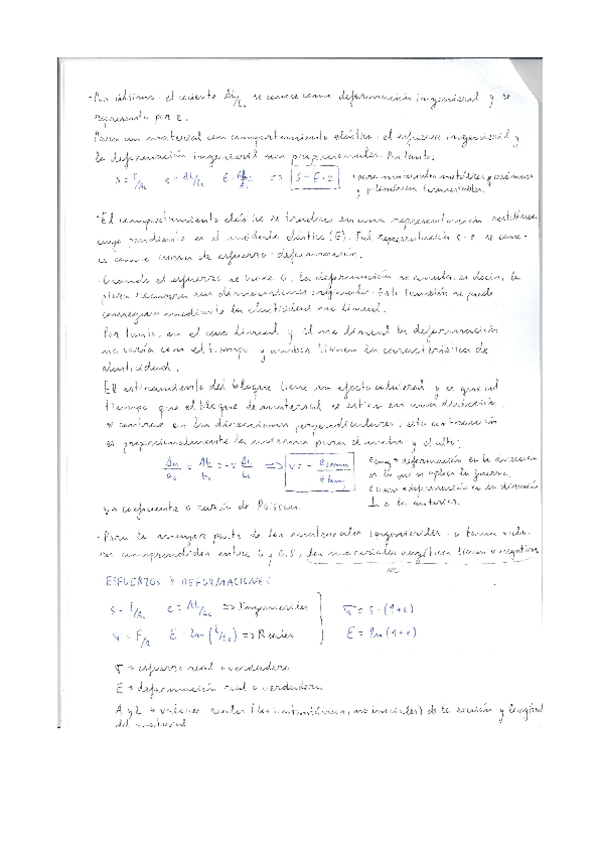 - Por último, el cociente ΔL/L₀ se conoce como deformación ingenieril y se
representa por e.
Para un material con comportamiento elástico, el esfuerzo ingenieril y
la deformación ingenieril son proporcionales. Por tanto:
s = F/A₀ e = ΔL/L₀ => S = E·e para materiales metálicos y cerámicos
y plásticos termoestables.
· El comportamiento elástico se traduce en una representación rectilínea
cuya pendiente es el módulo elástico (E). Tal representación s-e se cono-
ce como curva de esfuerzo-deformación.
- Cuando el esfuerzo se hace 0, la deformación se anula, es decir, la
pieza recupera sus dimensiones originales. Esto también se puede
conseguir mediante la elasticidad no lineal.
Por tanto, en el caso lineal y el no lineal la deformación
no varía con el tiempo y ambos tienen la característica de
elasticidad.
El estiramiento del bloque tiene un efecto lateral y es que al
tiempo que el bloque de material se estira en una dirección,
se contrae en las direcciones perpendiculares, esta contracción
es proporcionalmente la misma para el ancho y el alto:
= -ν ΔL/L₀ => ν = - deformación en la dirección
en la que se aplica la fuerza.
deformación en la dirección
⊥ a la anterior.
ν → coeficiente o razón de Poisson.
- Para la mayor parte de los materiales ingenieriles, ν toma valo-
res comprendidos entre 0 y 0.5, los materiales auxéticos tienen ν negativo
NO
ESFUERZOS Y DEFORMACIONES
s = F/A₀ e = ΔL/L₀ => Ingenieriles σ = s·(1+e)
σ = F/A ε = ln(L/L₀) => Reales ε = ln(1+e)
σ → esfuerzo real o verdadero
ε → deformación real o verdadera
A y L → valores reales (los instantáneos, no iniciales) de la sección y longitud
del material